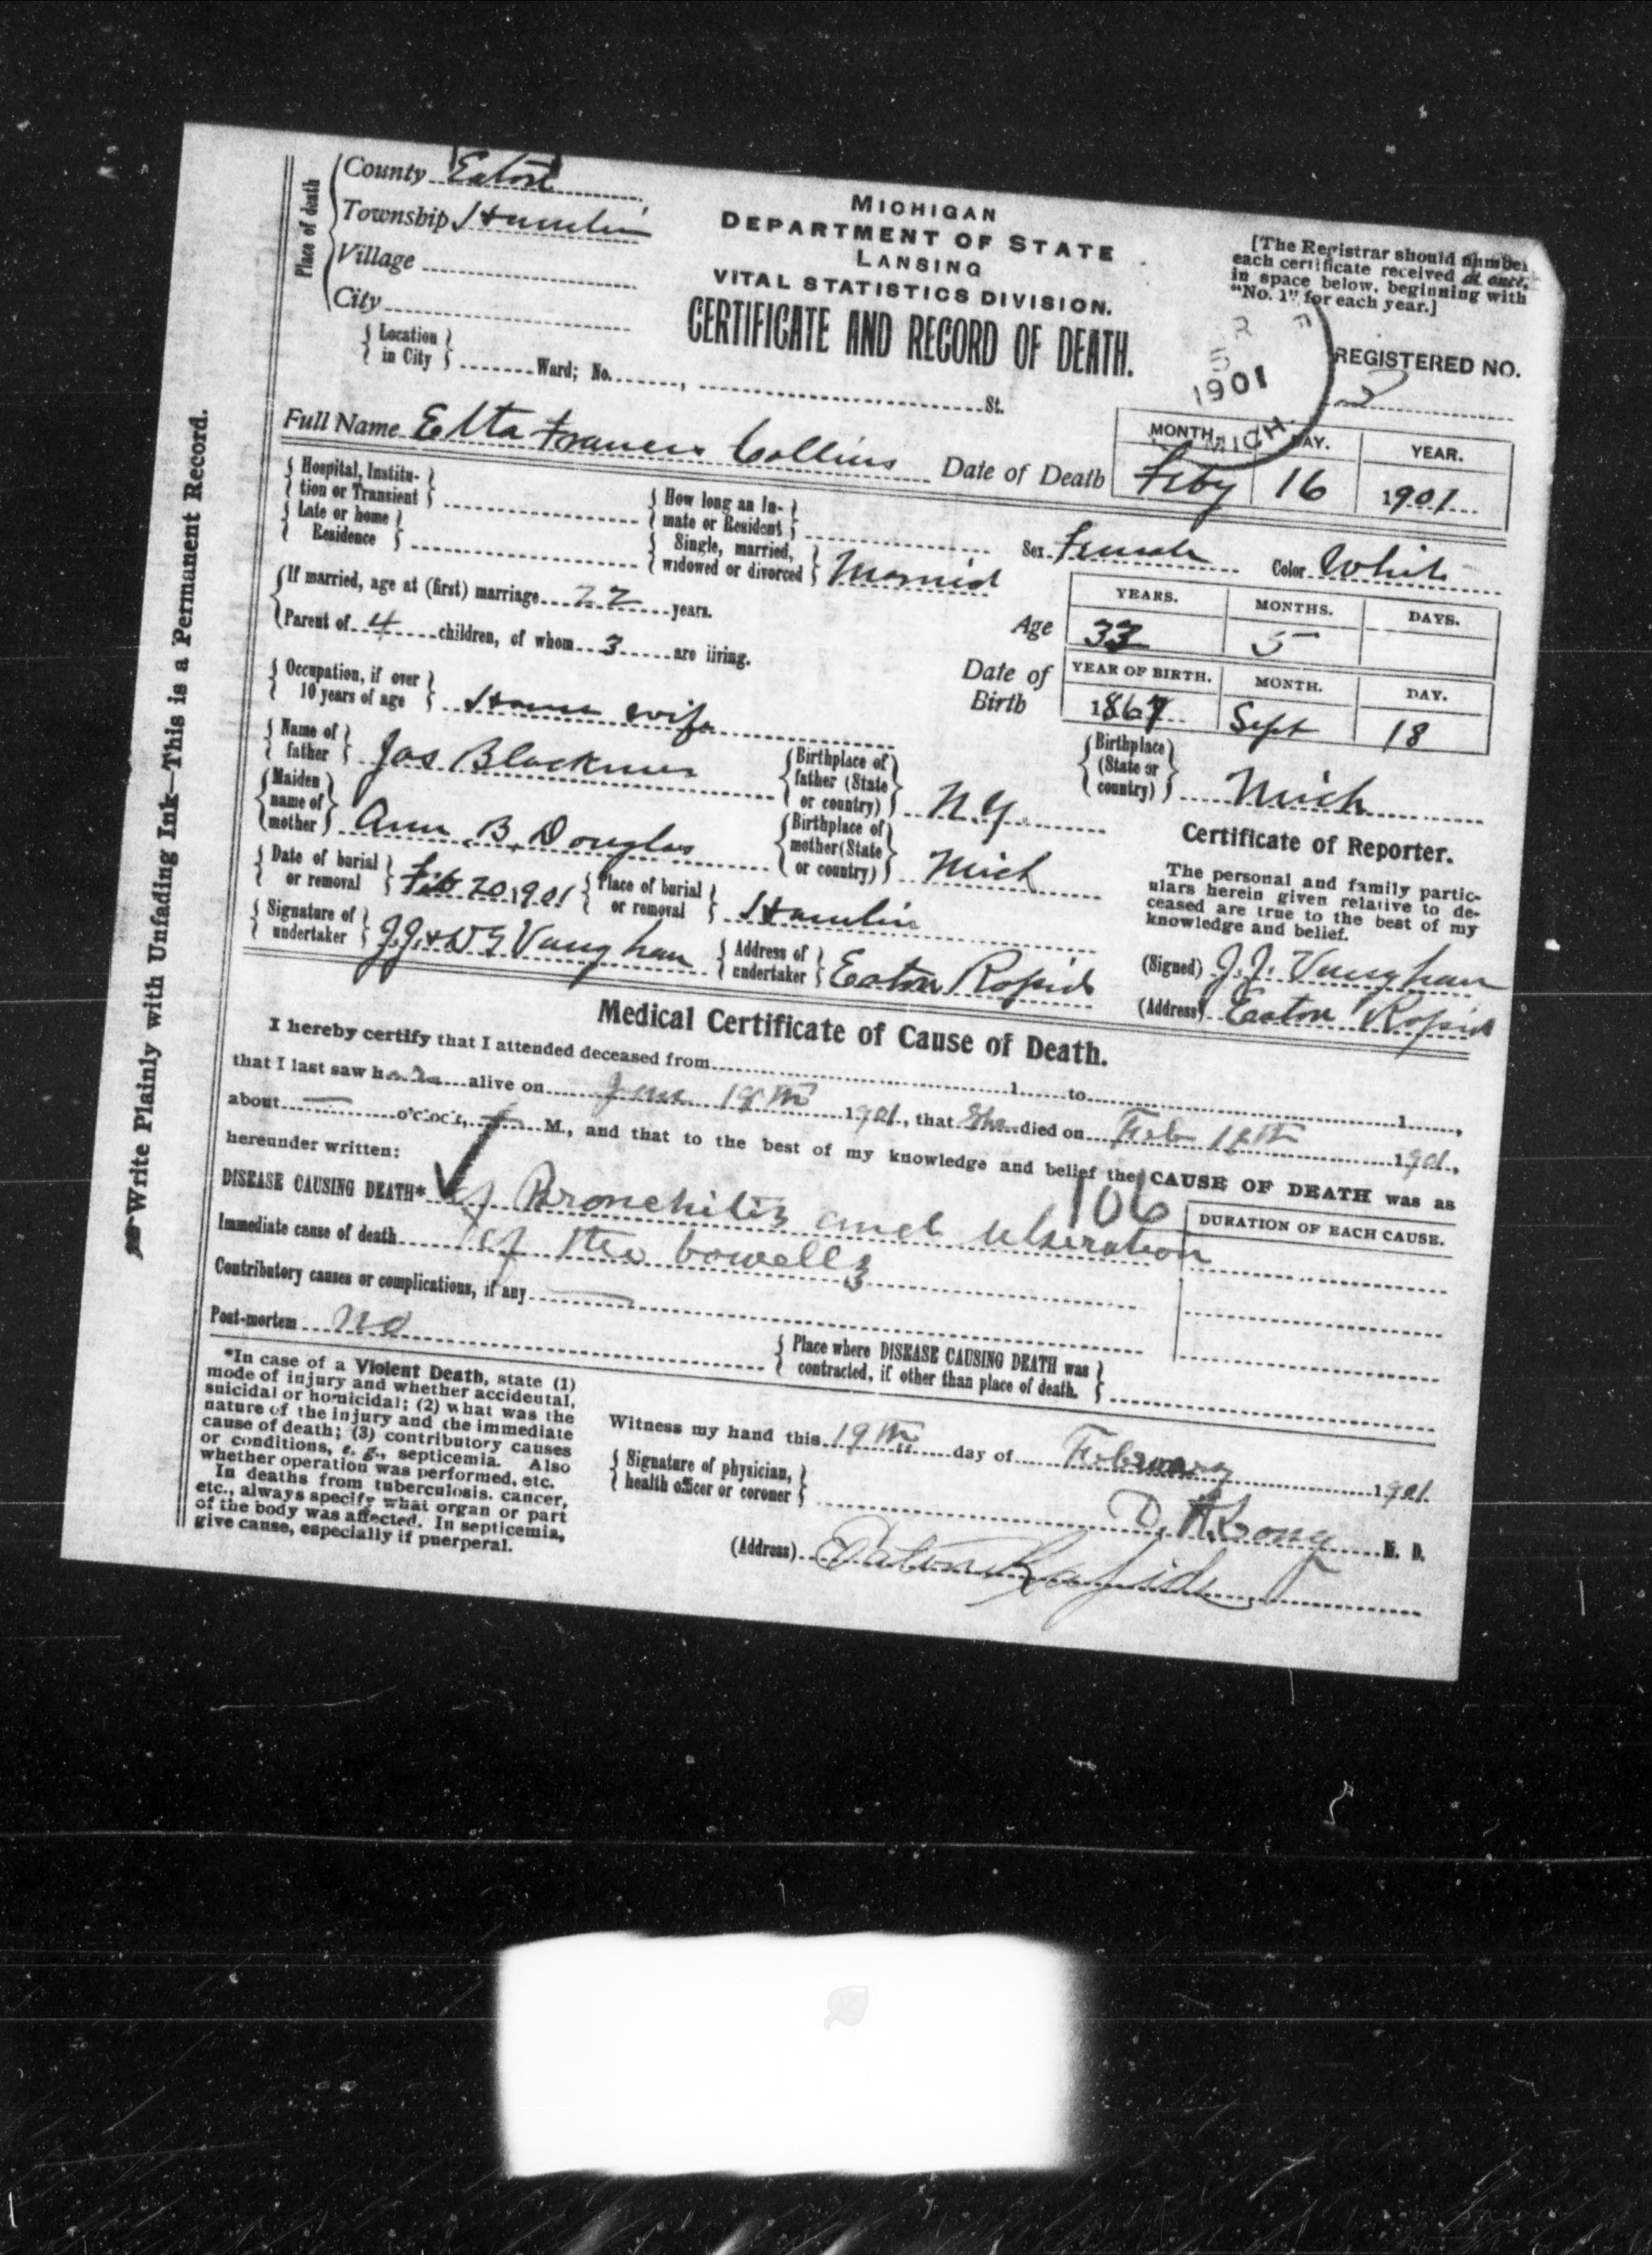 Write Plainly with Unfading Ink—This is a Permanent Record.
Place of death
County Eaton
Township Hamlin
Village
City
Location in City Ward; No. , St.
MICHIGAN
DEPARTMENT OF STATE
LANSING
VITAL STATISTICS DIVISION.
CERTIFICATE AND RECORD OF DEATH.
[The Registrar should number
each certificate received at once,
in space below, beginning with
"No. 1" for each year.]
1901
MICH.
REGISTERED NO.
2
Full Name Etta Frances Collins Date of Death
MONTH. DAY. YEAR.
Feby 16 1901
Hospital, Institution or Transient
How long an Inmate or Resident
Late or home Residence
Single, married, widowed or divorced Married
Sex Female Color White
If married, age at (first) marriage 22 years.
Parent of 4 children, of whom 3 are living.
Age
YEARS. MONTHS. DAYS.
33 5
Date of Birth
YEAR OF BIRTH. MONTH. DAY.
1867 Sept 18
Occupation, if over 10 years of age House wife
Name of father Jas Blackmer
Birthplace of father (State or country) N.Y.
Birthplace (State or country) Mich
Maiden name of mother Ann B. Douglas
Birthplace of mother (State or country) Mich
Date of burial or removal Feb 20 1901
Place of burial or removal Hamlin
Signature of undertaker J.J. & W G Vaughan
Address of undertaker Eaton Rapids
Certificate of Reporter.
The personal and family partic-
ulars herein given relative to de-
ceased are true to the best of my
knowledge and belief.
(Signed) J.J. Vaughan
(Address) Eaton Rapids
Medical Certificate of Cause of Death.
I hereby certify that I attended deceased from 1 to 1 ,
that I last saw h alive on 18th 1901, that She died on Feb 16th 1901,
about — o'clock, M., and that to the best of my knowledge and belief the CAUSE OF DEATH was as
hereunder written:
106
DISEASE CAUSING DEATH* of Bronchitis and ulseration
DURATION OF EACH CAUSE.
Immediate cause of death of the bowells
Contributory causes or complications, if any —
Post-mortem no
Place where DISEASE CAUSING DEATH was contracted, if other than place of death.
*In case of a Violent Death, state (1)
mode of injury and whether accidental,
suicidal or homicidal; (2) what was the
nature of the injury and the immediate
cause of death; (3) contributory causes
or conditions, e. g., septicemia. Also
whether operation was performed, etc.
In deaths from tuberculosis, cancer,
etc., always specify what organ or part
of the body was affected. In septicemia,
give cause, especially if puerperal.
Witness my hand this 19th day of February 1901.
Signature of physician, health officer or coroner
M. D.
(Address) Eaton Rapids